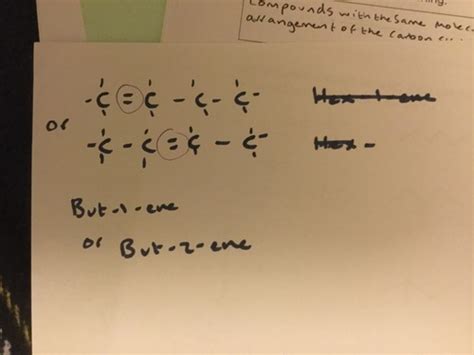 Compounds with the same molec
arrangement of the carbon
-C=C-C-C- Hex-1-ene
or
-C-C=C-C- Hex-
But-1-ene
or But-2-ene